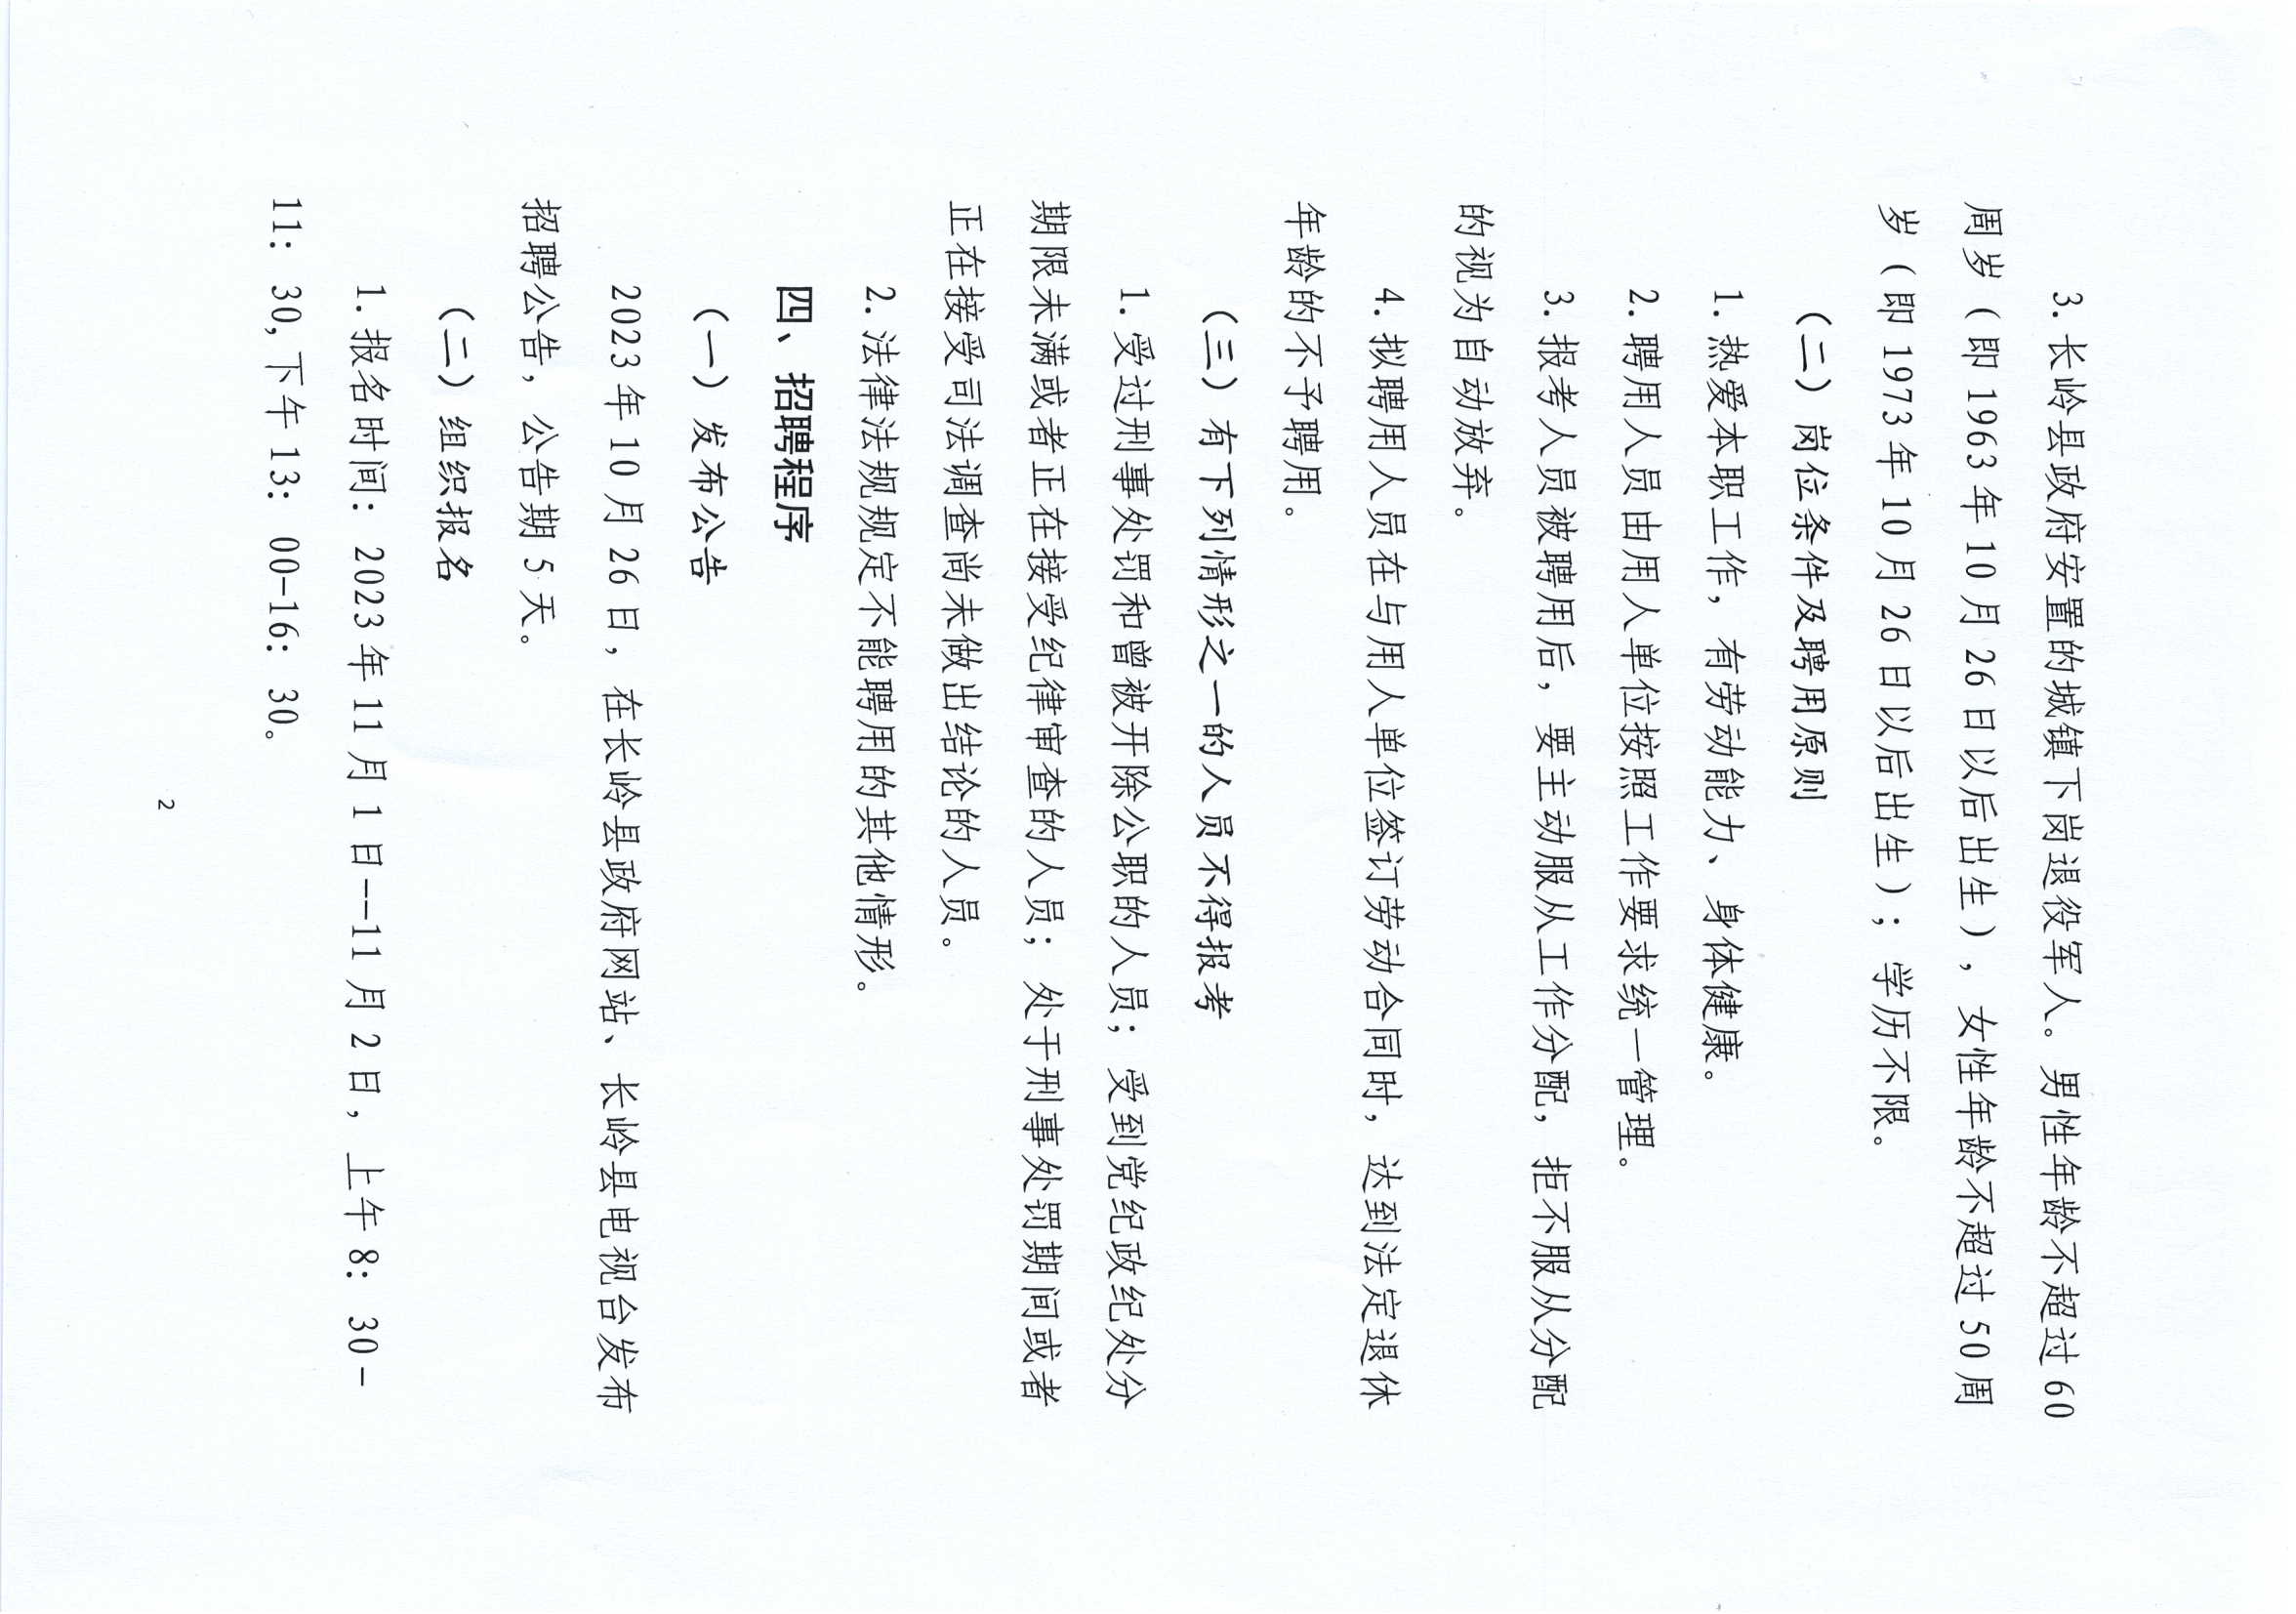 3. 长岭县政府安置的城镇下岗退役军人。男性年龄不超过 60
周岁（即 1963 年 10 月 26 日以后出生），女性年龄不超过 50 周
岁（即 1973 年 10 月 26 日以后出生）；学历不限。
（二）岗位条件及聘用原则
1. 热爱本职工作，有劳动能力、身体健康。
2. 聘用人员由用人单位按照工作要求统一管理。
3. 报考人员被聘用后，要主动服从工作分配，拒不服从分配
的视为自动放弃。
4. 拟聘用人员在与用人单位签订劳动合同时，达到法定退休
年龄的不予聘用。
（三）有下列情形之一的人员不得报考
1. 受过刑事处罚和曾被开除公职的人员；受到党纪政纪处分
期限未满或者正在接受纪律审查的人员；处于刑事处罚期间或者
正在接受司法调查尚未做出结论的人员。
2. 法律法规规定不能聘用的其他情形。
四、招聘程序
（一）发布公告
2023 年 10 月 26 日，在长岭县政府网站、长岭县电视台发布
招聘公告，公告期 5 天。
（二）组织报名
1. 报名时间：2023 年 11 月 1 日--11 月 2 日，上午 8：30-
11：30,下午 13：00-16：30。
2